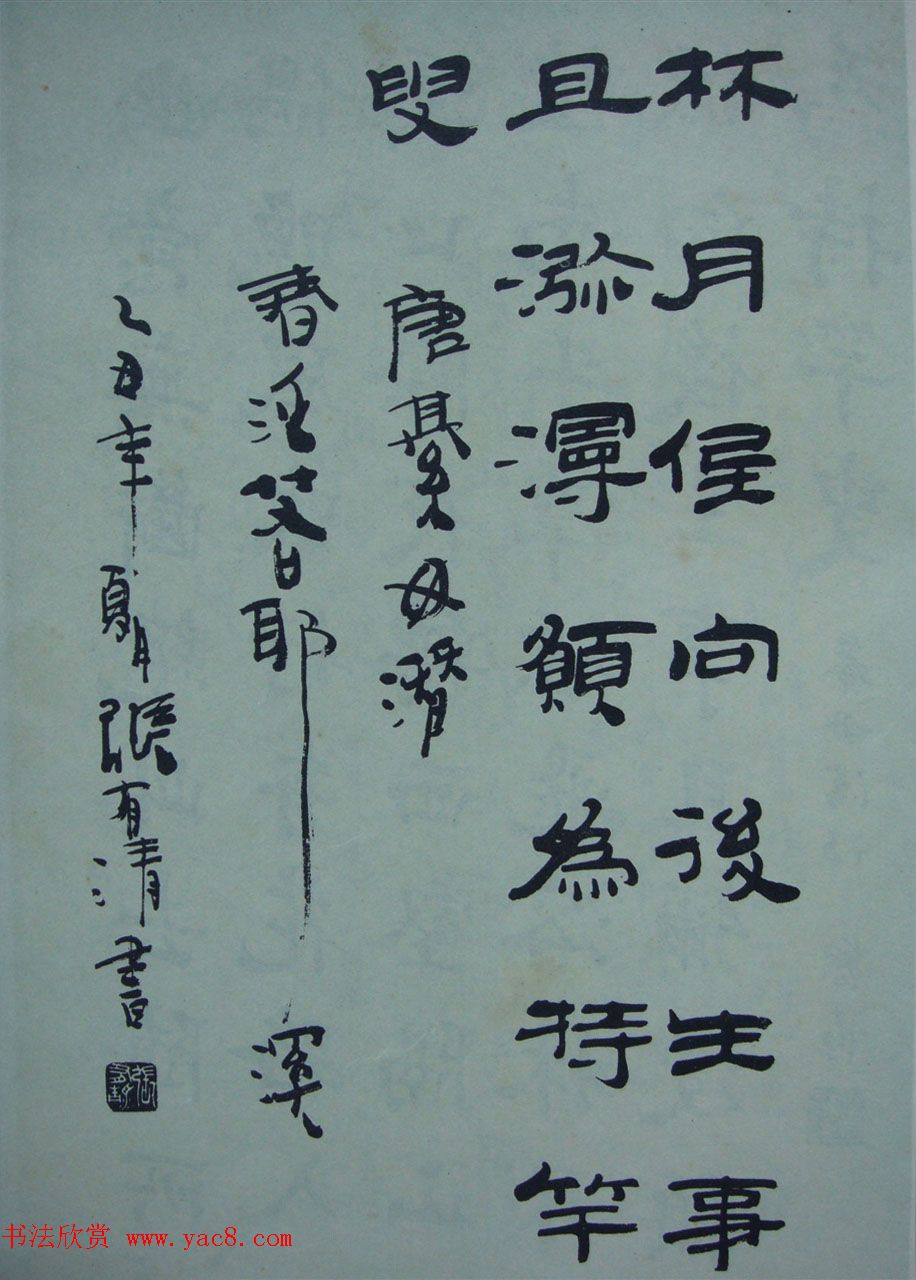 林月低向後生事
且㳽漫願為持竿
叟
唐綦毋潛
春泛若耶溪
乙丑年夏月張有清書
书法欣赏 www.yac8.com